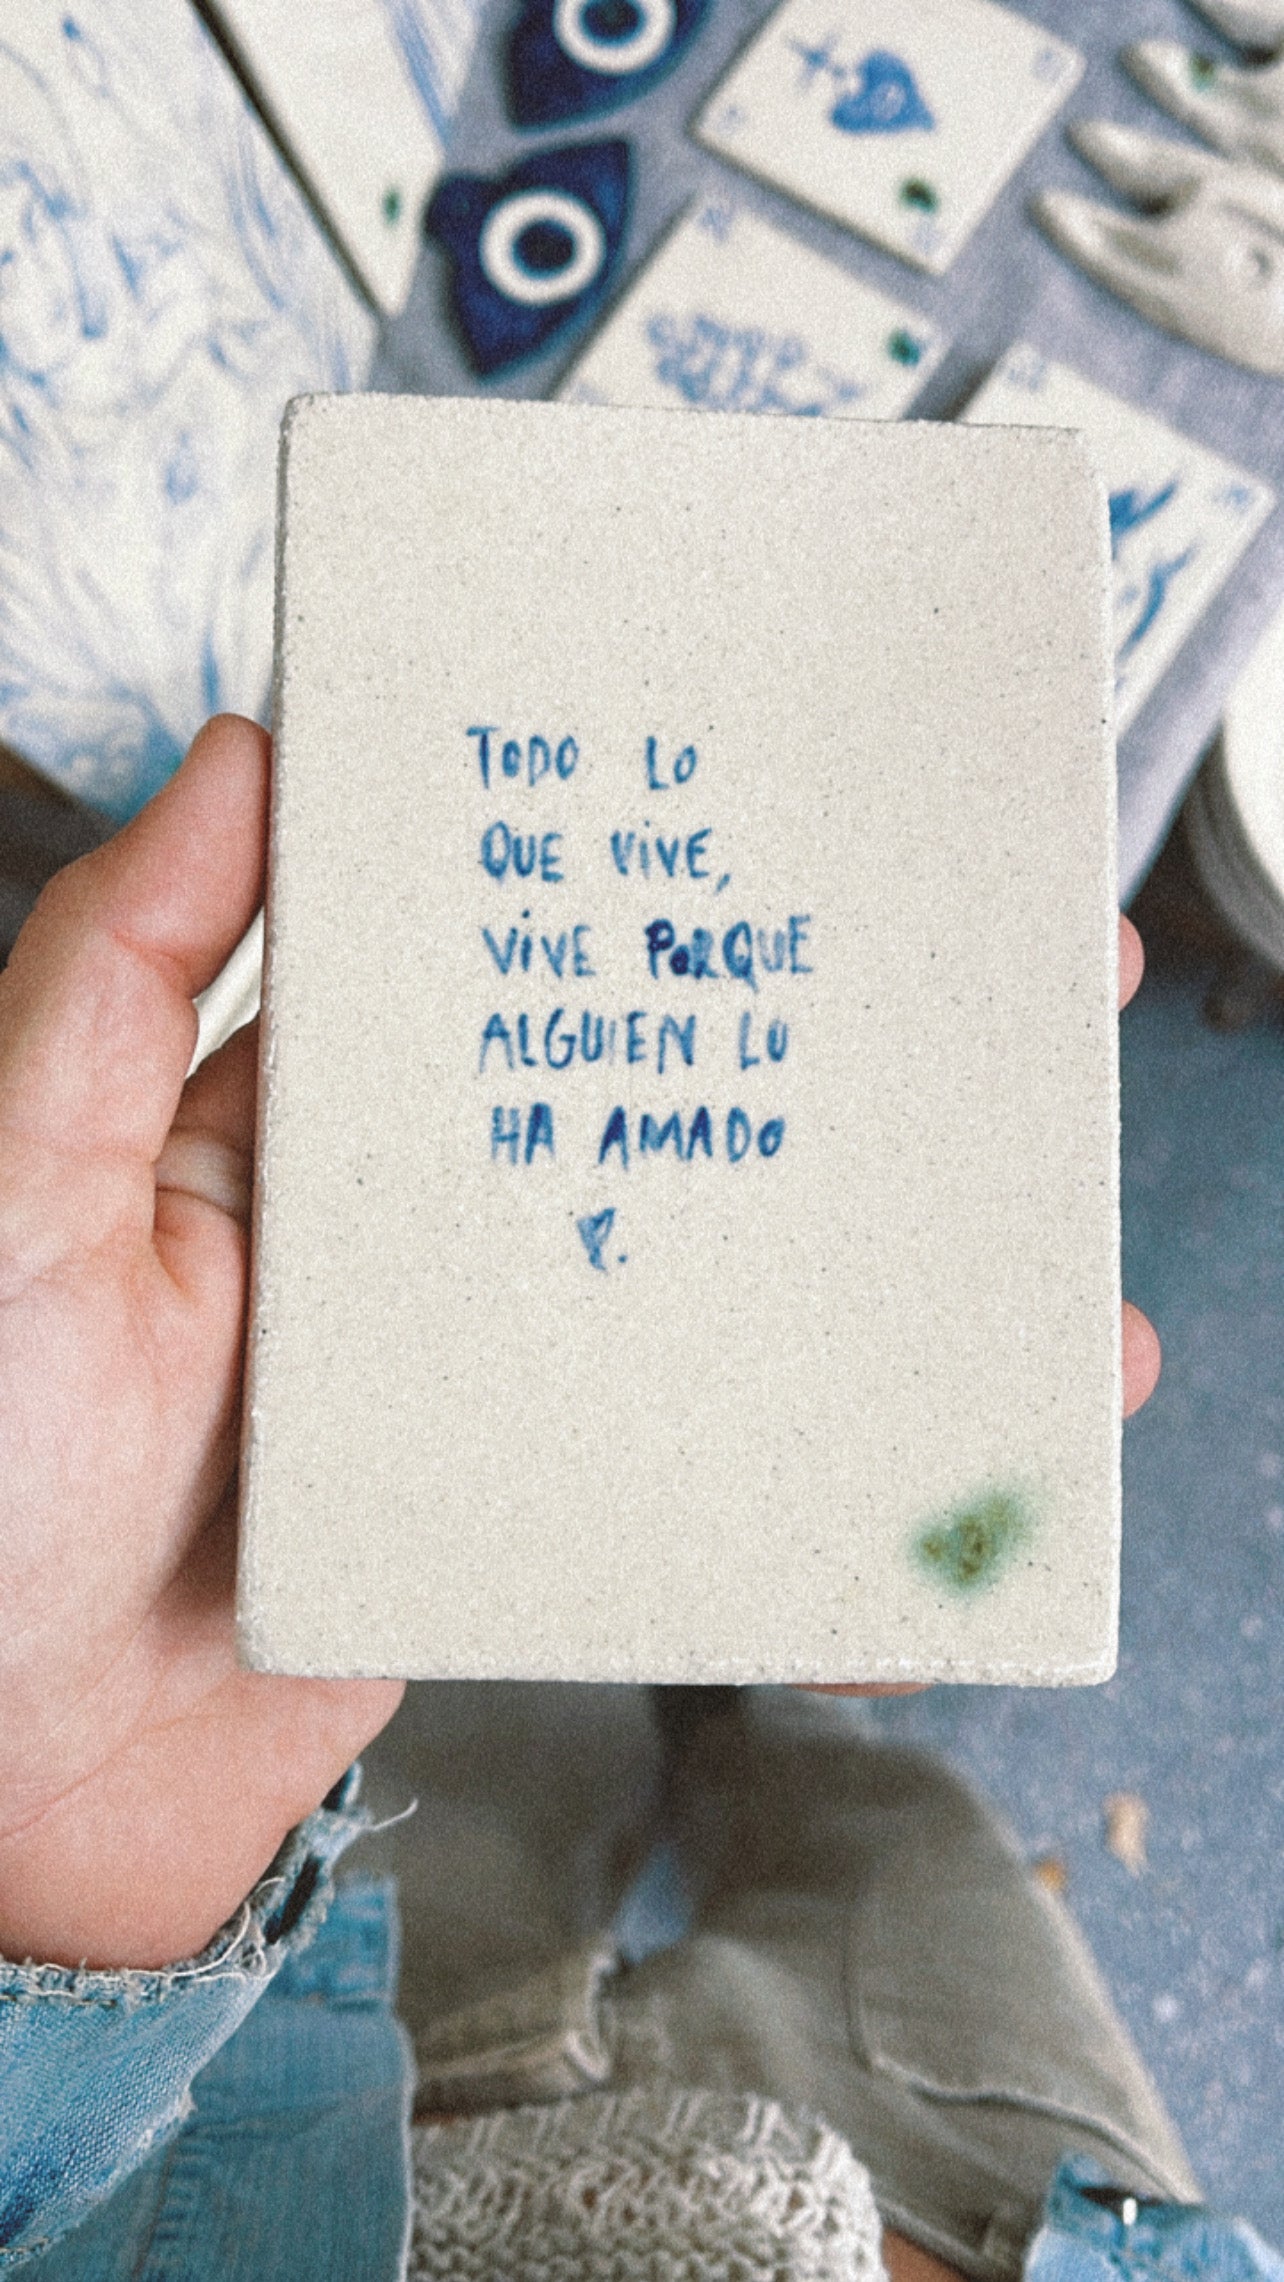 TODO LO
QUE VIVE,
VIVE PORQUE
ALGUIEN LO
HA AMADO